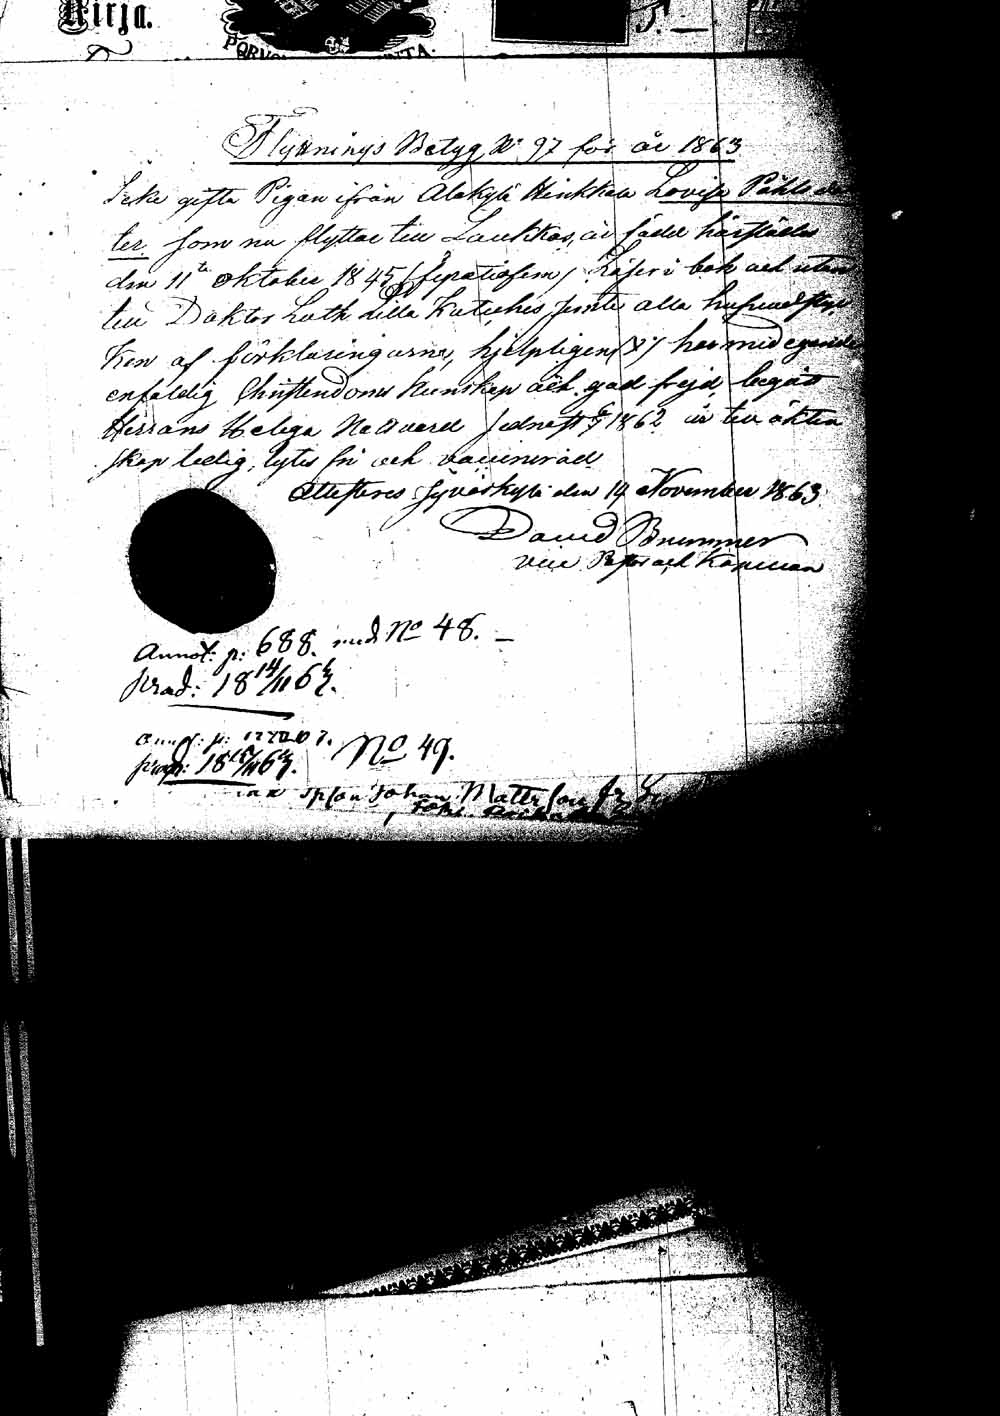 Kirja.
5. —
Flyttnings Betyg № 97 för år 1863
Icke gifta Pigan ifrån Alakylä Hinkkala Lovisa Påhls dot
ter som nu flyttar till Laukkas, är född härstädes
den 11te Oktober 1845 (fyratiofem) Läser i bok och utan
till Doktor Luth. lilla Kateches jemte alla hufvudstyc
ken af förklaringarne, hjelpligen har med egande
enfaldig Christendoms kunskap och god frejd, begått
Herrans Heliga Nattvard sednast 1862 är till äkten
skap ledig, lytes fri och vaccinerad
Attesteras Jyväskylä den 14 November 1863
David Brummer
vice Pastor och Kapellan
Annot: p: 688. med No 48. —
prad: 18 14/11 63.
p: No 49.
18 15/11 63.
Johan Matts son